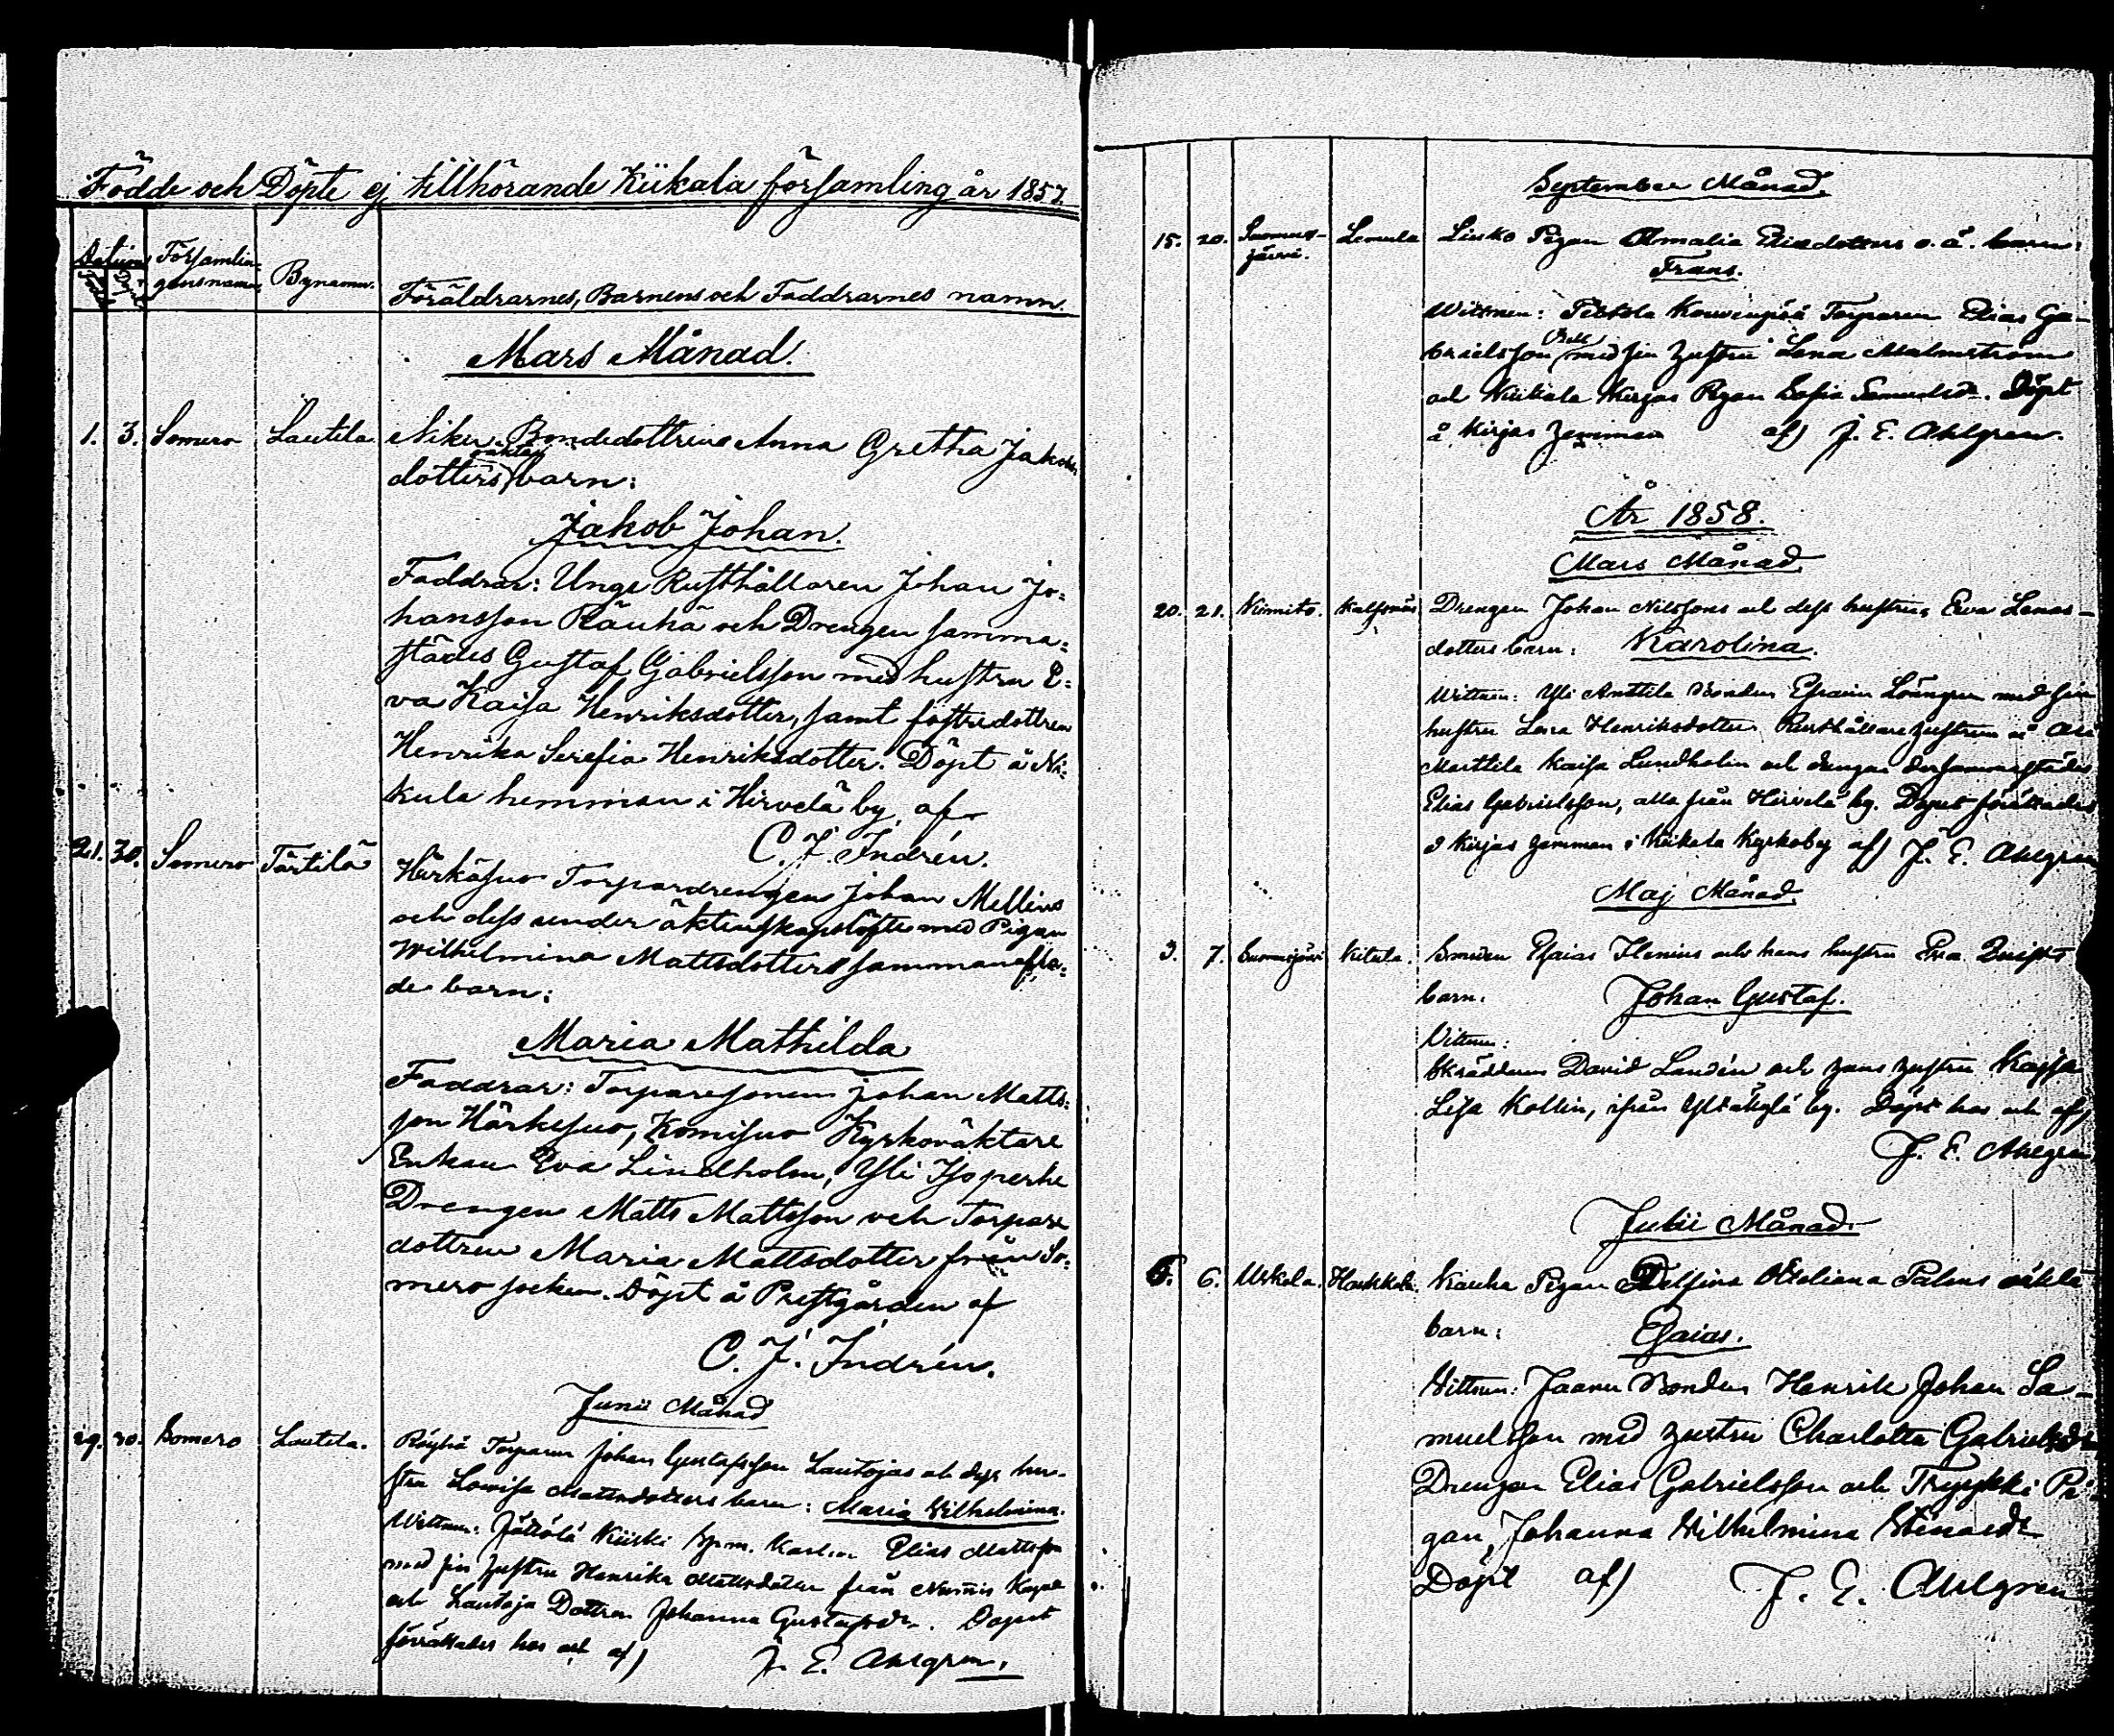 Födde och Döpte ej tillhörande Kiikala församling år 1857.
Datum Församlin=
gens namn Bynamn. Föräldrarnes, Barnens och Faddrarnes namn.
Mars Månad.
1. 3. Somero Lautela Niku Bondedottrens Anna Gretha Jakobs
oäkta
dotters barn:
Jakob Johan.
Faddrar: Unge Rusthållaren Johan Jo=
hansson Räuhä och Drengen samma=
städes Gustaf Gabrielsson med hustru E=
va Kaisa Henriksdotter, samt fosterdottren
Henrika Serafia Henriksdotter. Döpt å Ni=
kula hemman i Hirvelä by, af
C. J. Indrén.
21. 30. Somero Tärtilä Härkäsuo Torpardrengen Johan Mellins
och dess under äktenskapslöfte med Pigan
Wilhelmina Mattsdotter sammanafla=
de barn:
Maria Mathilda
Faddrar: Torparesonen Johan Matts=
son Härkesuo, Komisuo Kyrkoväktare
Enkan Eva Lindholm, Yli Isoperhe
Drengen Matts Mattsson och Torpare
dottren Maria Mattsdotter från So=
mero socken. Döpt å Prestgården af
C. J. Indrén.
Junii Månad
29. 30. Somero Lautela. Räyhä Torparen Johan Gustafsson Lautojas och dess hu-
stru Lovisa Mattsdotters barn: Maria Wilhelmina.
Wittnen: Jättölä Kiiski Elias Mattsson
med sin hustru Henrika Mattsdotter från Nummis Kapel
och Lautoja Dottren Johanna Gustafsdr. Dopet
förrättades hos och af) J. E. Ahlgren.
September Månad.
15. 20. Suomus-
järvi. Lemula Liuko Pigan Amalia Eliedotters o. ä. barn:
Frans.
Wittnen: Pettola Torparen Elias Ga-
brielsson med sin hustru Lena Malmström
och Kiikala Kirjas Pigan Sofia Samuelsdr. Döpt
å Kirjas hemman af) J. E. Ahlgren.
År 1858.
Mars Månad.
20. 21. Kimito. Kalfsnäs Drengen Johan Nilssons och dess hustrus Eva Lenas-
dotters barn: Karolina.
Wittnen: Yli Anttila Bonden Efraim Löngren med sin
hustru Lena Henriksdotter Rusthållare hustrun å Ali
Marttila Kaisa Lundholm och drengen dersammastädes
Elias Gabrielsson, alla från Hirvelä by. Dopet förrättades
å Kirjas hemman i Kiikala Kyrkoby af) J. E. Ahlgren
Maj Månad.
3. 7. Suomusjärvi Kitula. Smeden Esaias Ilenius och hans hustru Eva Quists
barn: Johan Gustaf.
Vittnen:
Skräddaren David Landén och hans hustru Kajsa
Lisa Kollin, ifrån by. Döpt hos och af)
J. E. Ahlgren
Julii Månad.
6. 6. Uskela. Haukkala. Kauka Pigan Delfina Palms oäkta
barn: Esaias.
Vittnen: Jaanu Bonden Henrik Johan Sa-
muelsson med hustru Charlotta Gabrielsdr
Drengen Elias Gabrielsson och Tryykki Pi-
gan, Johanna Wilhelmina
Döpt af) J. E. Ahlgren